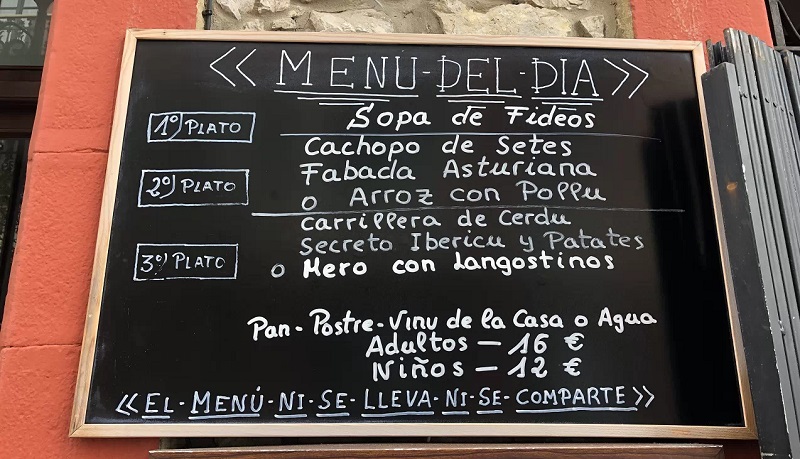 << MENU-DEL-DIA >>
1º) PLATO Sopa de Fideos
Cachopo de Setes
Fabada Asturiana
2º) PLATO o Arroz con Pollu
Carrillera de Cerdu
Secreto Ibericu y Patates
3º) PLATO o Mero con Langostinos
Pan - Postre - Vinu de la Casa o Agua
Adultos - 16 €
Niños - 12 €
<< EL - MENÚ - NI - SE - LLEVA - NI - SE - COMPARTE >>